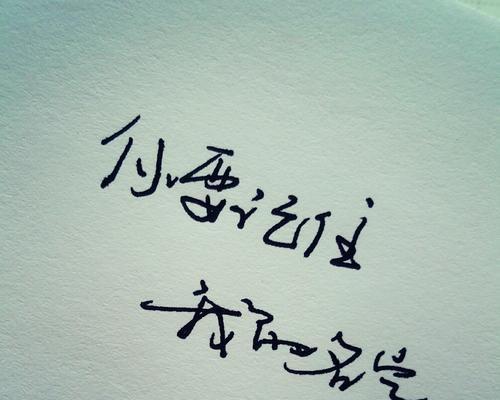 你要记住
我的名字